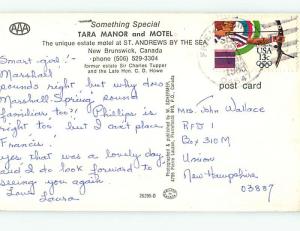 AAA
Something Special
TARA MANOR and MOTEL
The unique estate motel at ST. ANDREWS BY THE SEA,
New Brunswick, Canada
phone (506) 529-3304
former estate Sir Charles Tupper
and the Late Hon. C. D. Howe
USA
13c
post card
Smart girl!
Marshall
sounds right, but why does
Marshall-Spring sound
familiar too? Phillips is
right too, but I can't place
Francis!
Yes that was a lovely day
and I do look forward to
seeing you again.
Love
Laura
26295-D
Mrs. John Wallace
RFD 1
Box 310M
Union
New Hampshire
03887